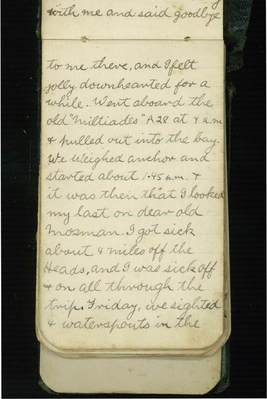 with me and said goodbye
to me there, and I felt
jolly downhearted for a
while. Went aboard the
old "Miltiades" A28 at 9 a.m
& pulled out into the bay.
We weighed anchor and
started about 1.45 a.m. &
it was then that I looked
my last on dear old
Mosman. I got sick
about 4 miles off the
Heads, and I was sick off
& on all through the
trip. Friday, we sighted
4 waterspouts in the